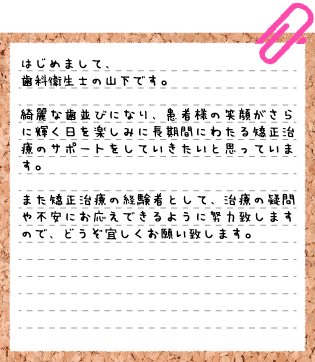 はじめまして、
歯科衛生士の山下です。
綺麗な歯並びになり、患者様の笑顔がさら
に輝く日を楽しみに長期間にわたる矯正治
療のサポートをしていきたいと思っていま
す。
また矯正治療の経験者として、治療の疑問
や不安にお応えできるように努力致します
ので、どうぞ宜しくお願い致します。